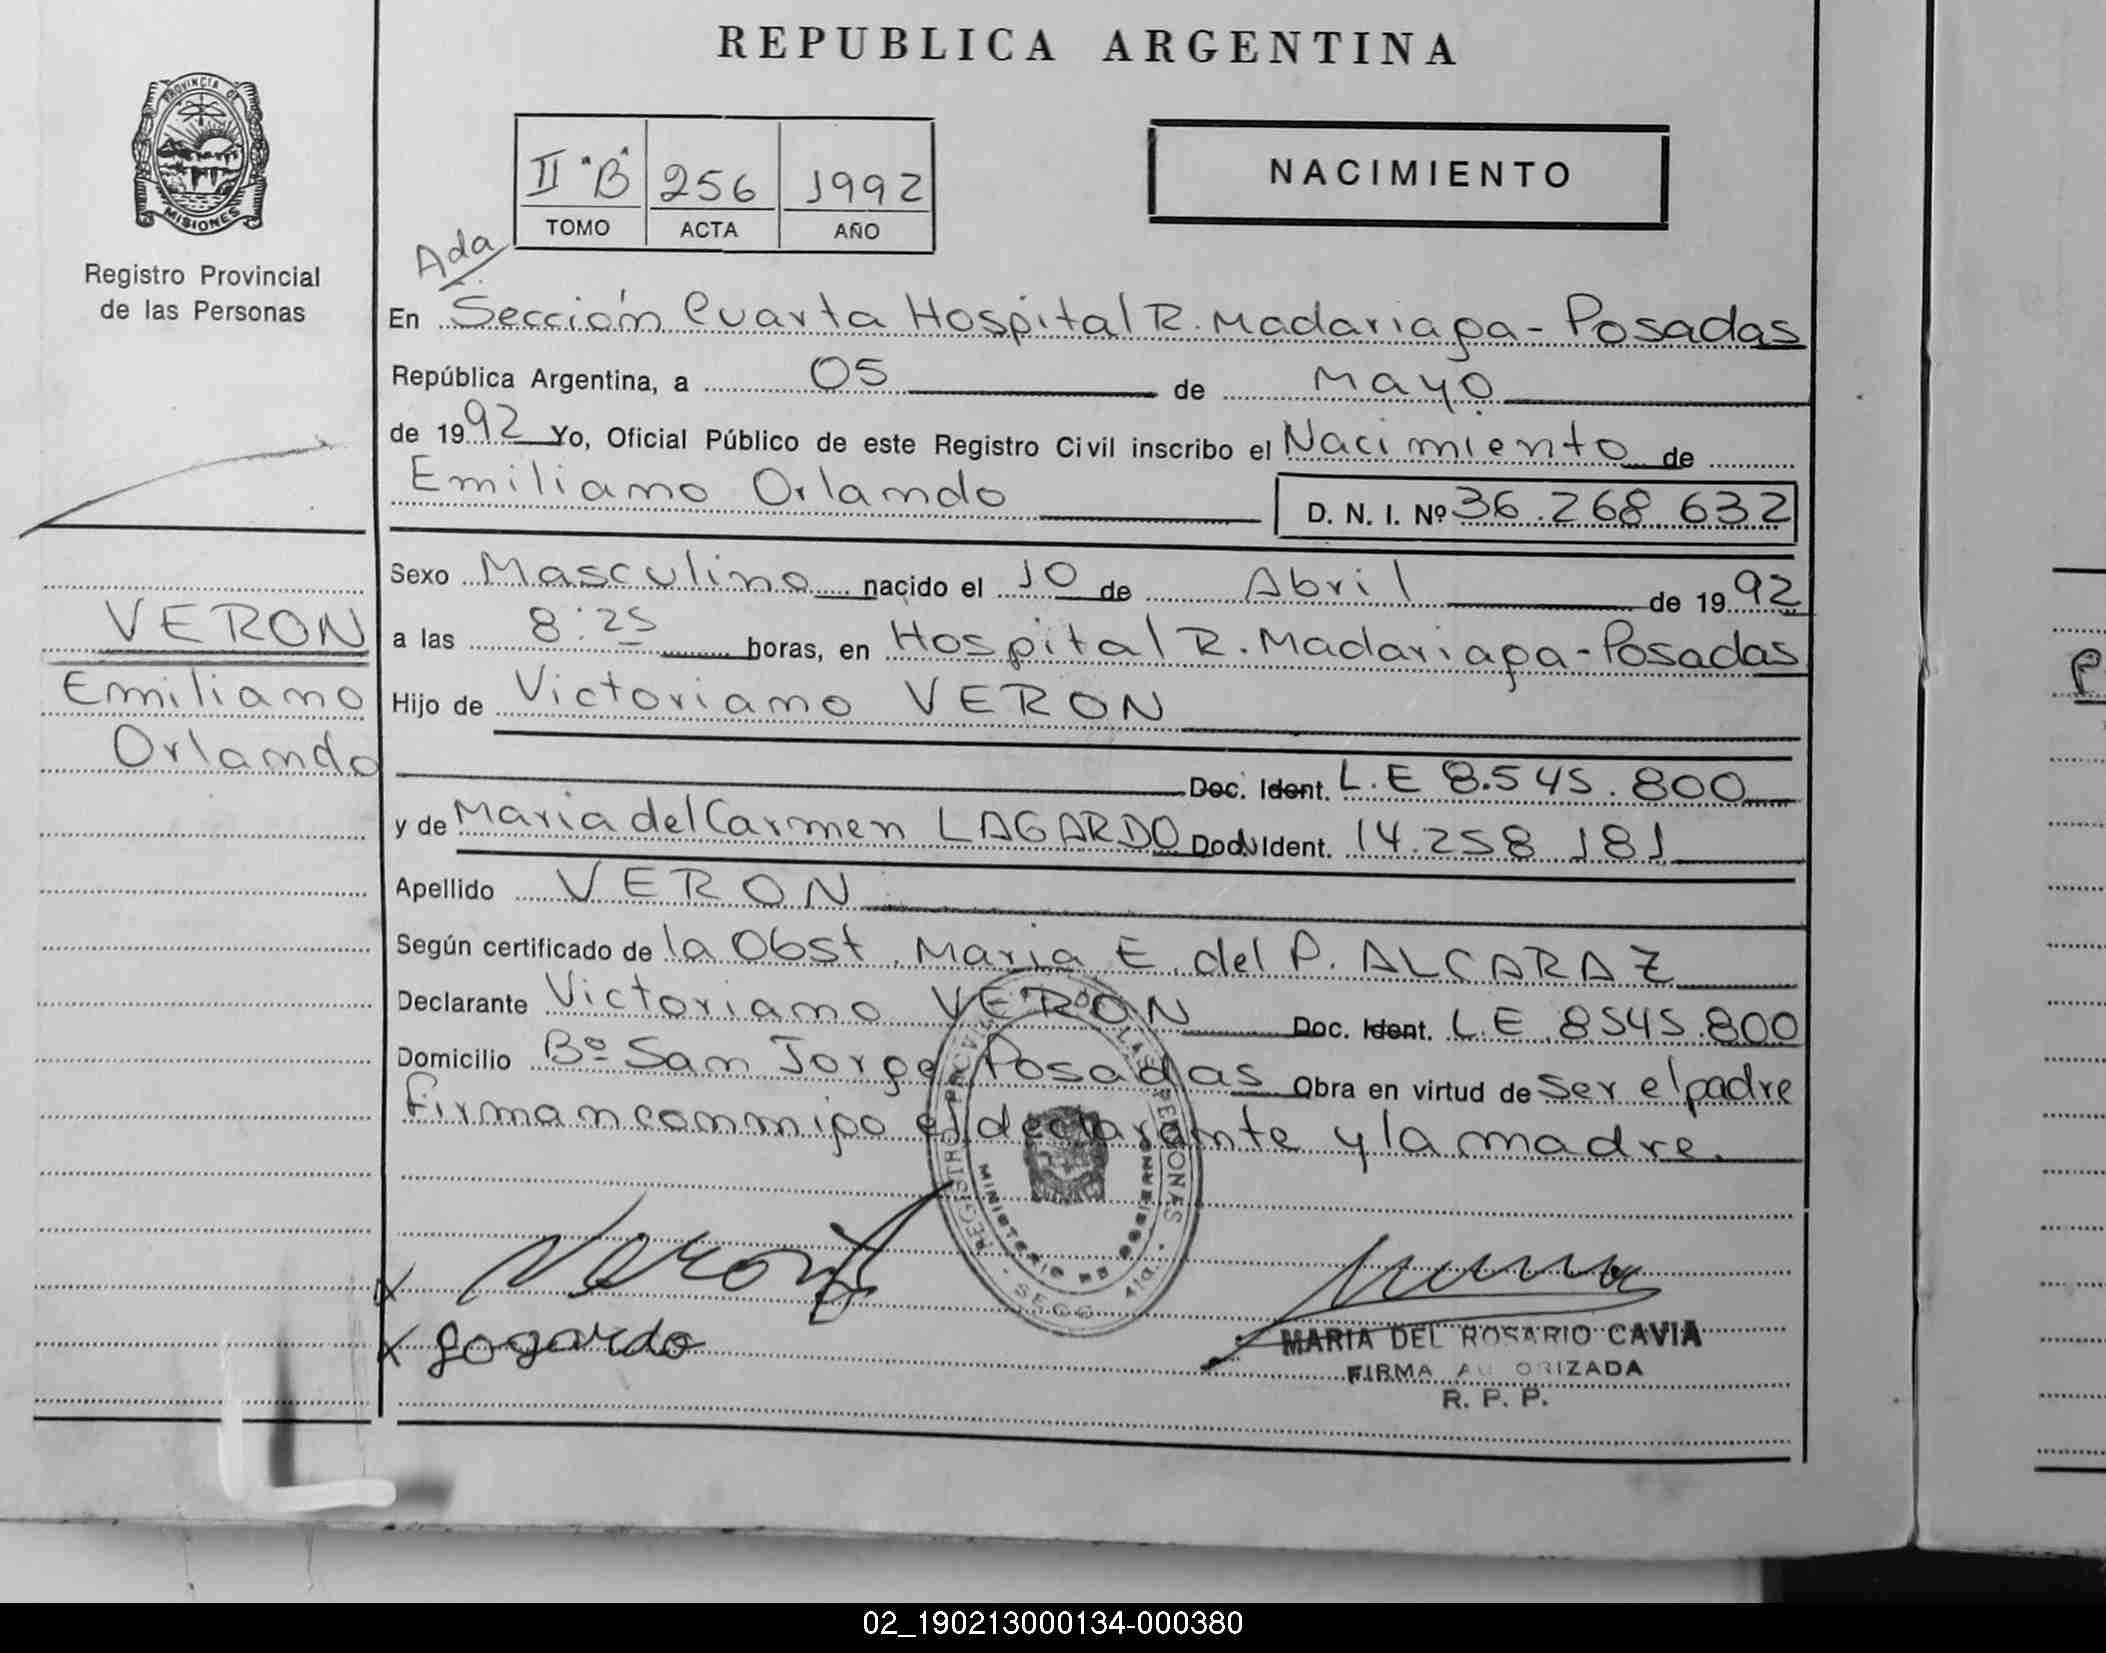 REPUBLICA ARGENTINA
PROVINCIA DE
MISIONES
Registro Provincial
de las Personas
II "B" 256 1992
TOMO ACTA AÑO
NACIMIENTO
Ada
En Sección Cuarta Hospital R. Madariaga - Posadas
República Argentina, a 05 de Mayo
de 1992 Yo, Oficial Público de este Registro Civil inscribo el Nacimiento de
Emiliano Orlando D. N. I. Nº 36.268.632
Sexo Masculino nacido el 10 de Abril de 1992
a las 8:25 horas, en Hospital R. Madariaga - Posadas
Hijo de Victoriano VERON
Doc. Ident. L.E 8.545.800
y de Maria del Carmen LAGARDO Doc. Ident. 14.258 181
Apellido VERON
Según certificado de la Obst. Maria E. del P. ALCARAZ
Declarante Victoriano VERON Doc. Ident. L.E 8545.800
Domicilio Bº San Jorge Posadas Obra en virtud de ser el padre
firman conmigo el declarante y la madre.
VERON
Emiliano
Orlando
REGISTRO PROVINCIAL LAS PERSONAS
MINISTERIO DE GOBIERNO
X Veron
X Lagardo
MARIA DEL ROSARIO CAVIA
FIRMA AUTORIZADA
R. P. P.
02_190213000134-000380